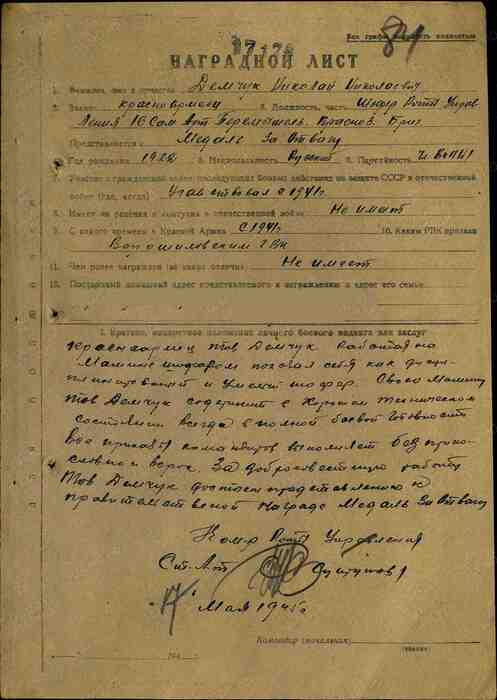 Все графы заполнять полностью
84
17178
НАГРАДНОЙ ЛИСТ
1. Фамилия, имя и отчество Демчук Николай Николаевич
2. Звание красноармеец 3. Должность, часть Шофер Роты Управ
ления 16 Сам Арт Перемышль. Краснозн. Бриг
Представляется к Медаль За Отвагу
4. Год рождения 5. Национальность Русский 6. Партийность Чл ВКП(б)
7. Участие в гражданской войне, последующих боевых действиях по защите СССР и отечественной
войне (где, когда) Участвовал с 1941г
8. Имеет ли ранения и контузии в отечественной войне Не имеет
9. С какого времени в Красной Армии С 1941г 10. Каким РВК призван
Ворошиловским ГВК
11. Чем ранее награжден (за какие отличия) Не имеет
12. Постоянный домашний адрес представляемого к награждению и адрес его семьи
1. Краткое, конкретное изложение личного боевого подвига или заслуг
Красноармеец Тов Демчук Работая на
Машине шофером показал себя как дисци-
плинированный и умелый шофер. Свою машину
Тов Демчук содержит в хорошем техническом
состоянии всегда в полной боевой готовности
Все приказы командиров выполняет без
и верно. За добросовестную работу
Тов Демчук достоин представлению к
правительственной награде Медаль За Отвагу
Комр Роты Управления
Ст. Л-т
17 Мая 1945г
Командир (начальник)
(звание)
194